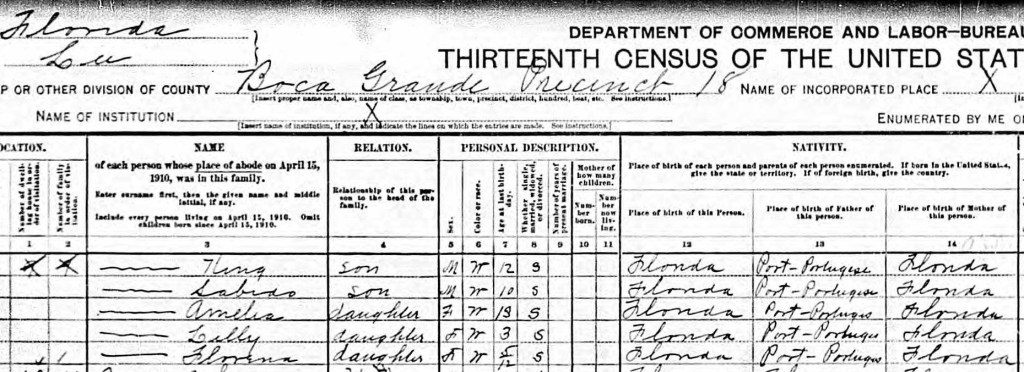 Florida
Lee
DEPARTMENT OF COMMERCE AND LABOR—BUREAU
THIRTEENTH CENSUS OF THE UNITED STAT
P OR OTHER DIVISION OF COUNTY Boca Grande Precinct 18 NAME OF INCORPORATED PLACE X
[Insert proper name and, also, name of class, as township, town, precinct, district, hundred, beat, etc. See instructions.]
NAME OF INSTITUTION X ENUMERATED BY ME O
[Insert name of institution, if any, and indicate the lines on which the entries are made. See instructions.]
OCATION. NAME RELATION. PERSONAL DESCRIPTION. NATIVITY.
Number of dwelling house in order of visitation.
Number of family in order of visitation.
of each person whose place of abode on April 15, 1910, was in this family.
Enter surname first, then the given name and middle initial, if any.
Include every person living on April 15, 1910. Omit children born since April 15, 1910.
Relationship of this person to the head of the family.
Sex.
Color or race.
Age at last birthday.
Whether single, married, widowed, or divorced.
Number of years of present marriage.
Mother of how many children.
Number born.
Number now living.
Place of birth of each person and parents of each person enumerated. If born in the United States, give the state or territory. If of foreign birth, give the country.
Place of birth of this Person.
Place of birth of Father of this person.
Place of birth of Mother of this person.
1 2 3 4 5 6 7 8 9 10 11 12 13 14
X X —— King son M W 12 S Florida Port-Portugese Florida
—— son M W 10 S Florida Port-Portugese Florida
—— Amelia daughter F W 13 S Florida Port-Portuges Florida
—— Lilly daughter F W 3 S Florida Port-Portugese Florida
—— daughter F W /12 S Florida Port-Portuges Florida